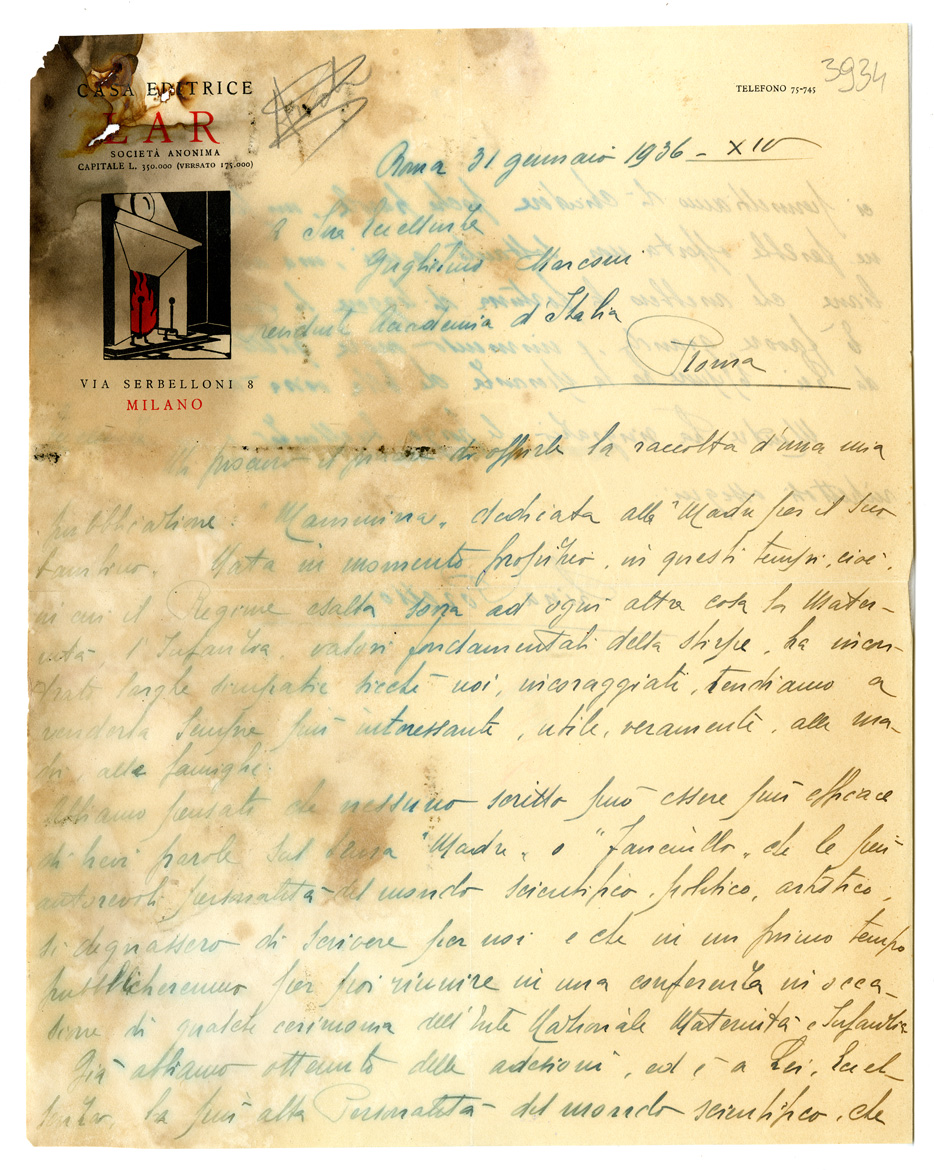 CASA EDITRICE
LAR
SOCIETÀ ANONIMA
CAPITALE L. 350.000 (VERSATO 175.000)
VIA SERBELLONI 8
MILANO
TELEFONO 75-745
3934
Roma 31 gennaio 1936 - XIV
A Sua Eccellenza
Guglielmo Marconi
Presidente Accademia d'Italia
Roma
di offrirle la raccolta d'una mia
pubblicazione: "Mammina" dedicata alla "Madre per il suo
bambino". Nata in momento propizio, in questi tempi, cioè,
in cui il Regime esalta sopra ad ogni altra cosa la Mater-
nità, l'Infanzia, valori fondamentali della stirpe, ha incon-
trato larghe simpatie sicchè noi, incoraggiati, tendiamo a
renderla sempre più interessante, utile, veramente, alle ma-
dri, alle famiglie.
Abbiamo pensato che nessuno scritto può essere più efficace
di brevi parole sul tema "Madre" o "Fanciullo" che le più
autorevoli personalità del mondo scientifico, politico, artistico,
si degnassero di scrivere per noi e che in un primo tempo
pubblicheremo per poi riunire in una conferenza in occa-
sione di qualche cerimonia dell'Ente Nazionale Maternità e Infanzia
Già abbiamo ottenuto delle adesioni, ed è a Lei, Eccel-
lenza, la più alta Personalità del mondo scientifico, che